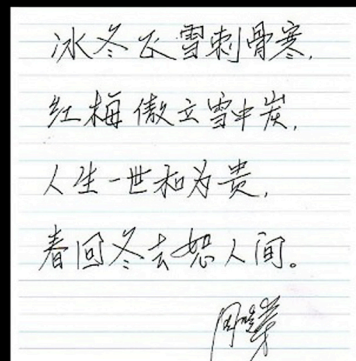 冰冬飞雪刺骨寒,
红梅傲立雪中炭,
人生一世和为贵,
春回冬去恕人间。